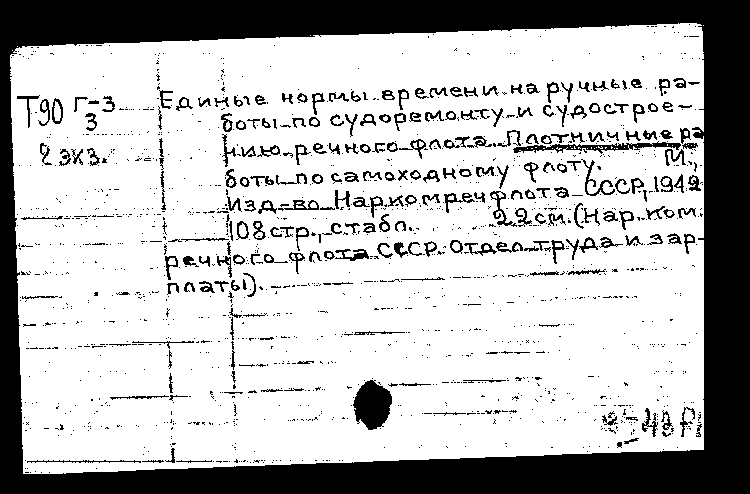 Единые нормы времени на ручные ра-
Т90 Г-3
3
боты по судоремонту и судострое-
2 экз.
нию речного флота. Плотничные ра
боты по самоходному флоту. М.,
Изд-во Наркомречфлота СССР, 1942
108 стр., с табл. 22 см. (Нар. ком.
речного флота СССР. Отдел труда и зар-
платы).